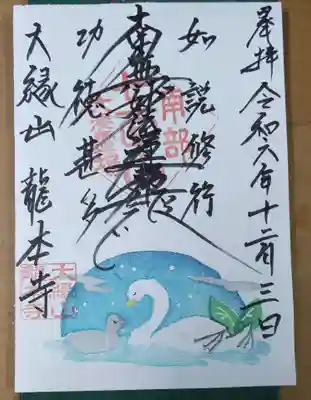 拝 令和六年十二月三日
如説修行
南無妙法蓮華経
功徳甚多し
大縁山 龍本寺
南部